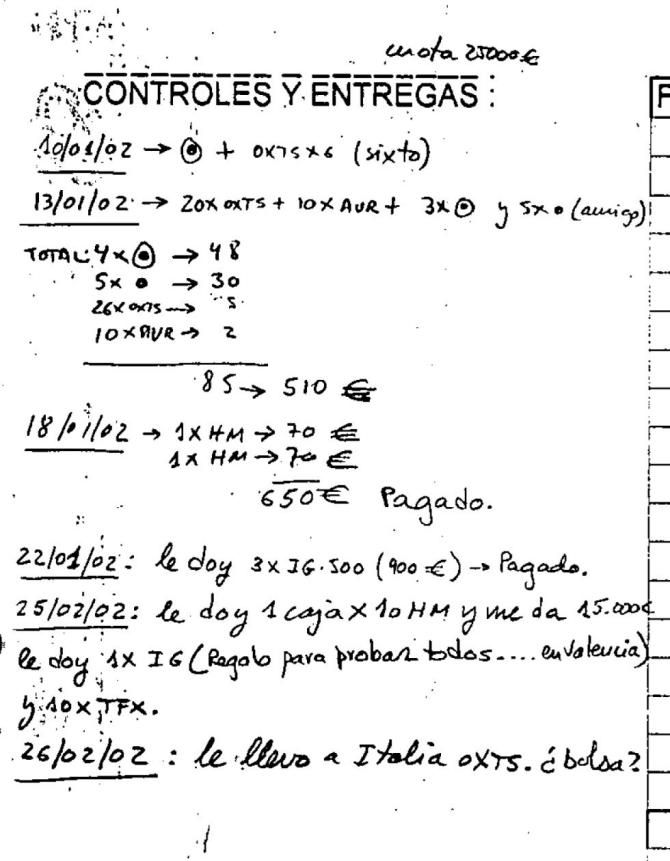 cuota 25000€
CONTROLES Y ENTREGAS :
10/01/02 → ⊙ + OXTS x 6 (sixto)
13/01/02 → 20x OXTS + 10 x AUR + 3x ⊙ y 5x • (amigo)
TOTAL: 4x ⊙ → 48
5x • → 30
26x OXTS → 5
10 x AUR → 2
85 → 510 €
18/01/02 → 1x HM → 70 €
1x HM → 70 €
650€ Pagado.
22/01/02: le doy 3x IG.500 (900 €) → Pagado.
25/02/02: le doy 1 caja x 10 HM y me da 15.000€
le doy 1x IG (Regalo para probar todos.... en Valencia)
y 10x TFX.
26/02/02 : le llevo a Italia OXTS. ¿bolsa?